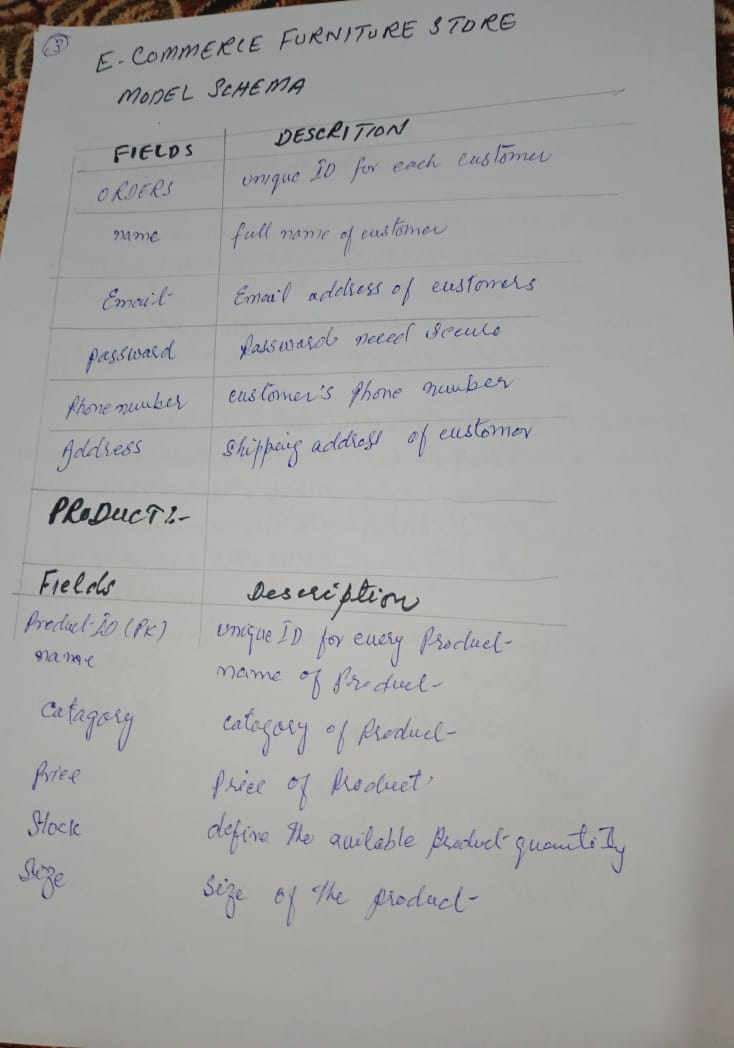 3
E-COMMERCE FURNITURE STORE
MODEL SCHEMA
FIELDS DESCRITION
ORDERS unique ID for each customer
name full name of customer
Email Email address of customers
password Passwords need secure
Phone number customer's phone number
Address Shipping address of customer
PRODUCT:-
Fields Description
Product ID (PK) unique ID for every Product
name name of Product
Catagory catagory of Product
Price Price of Product
Stock define the auilable Product quantity
Size Size of the product